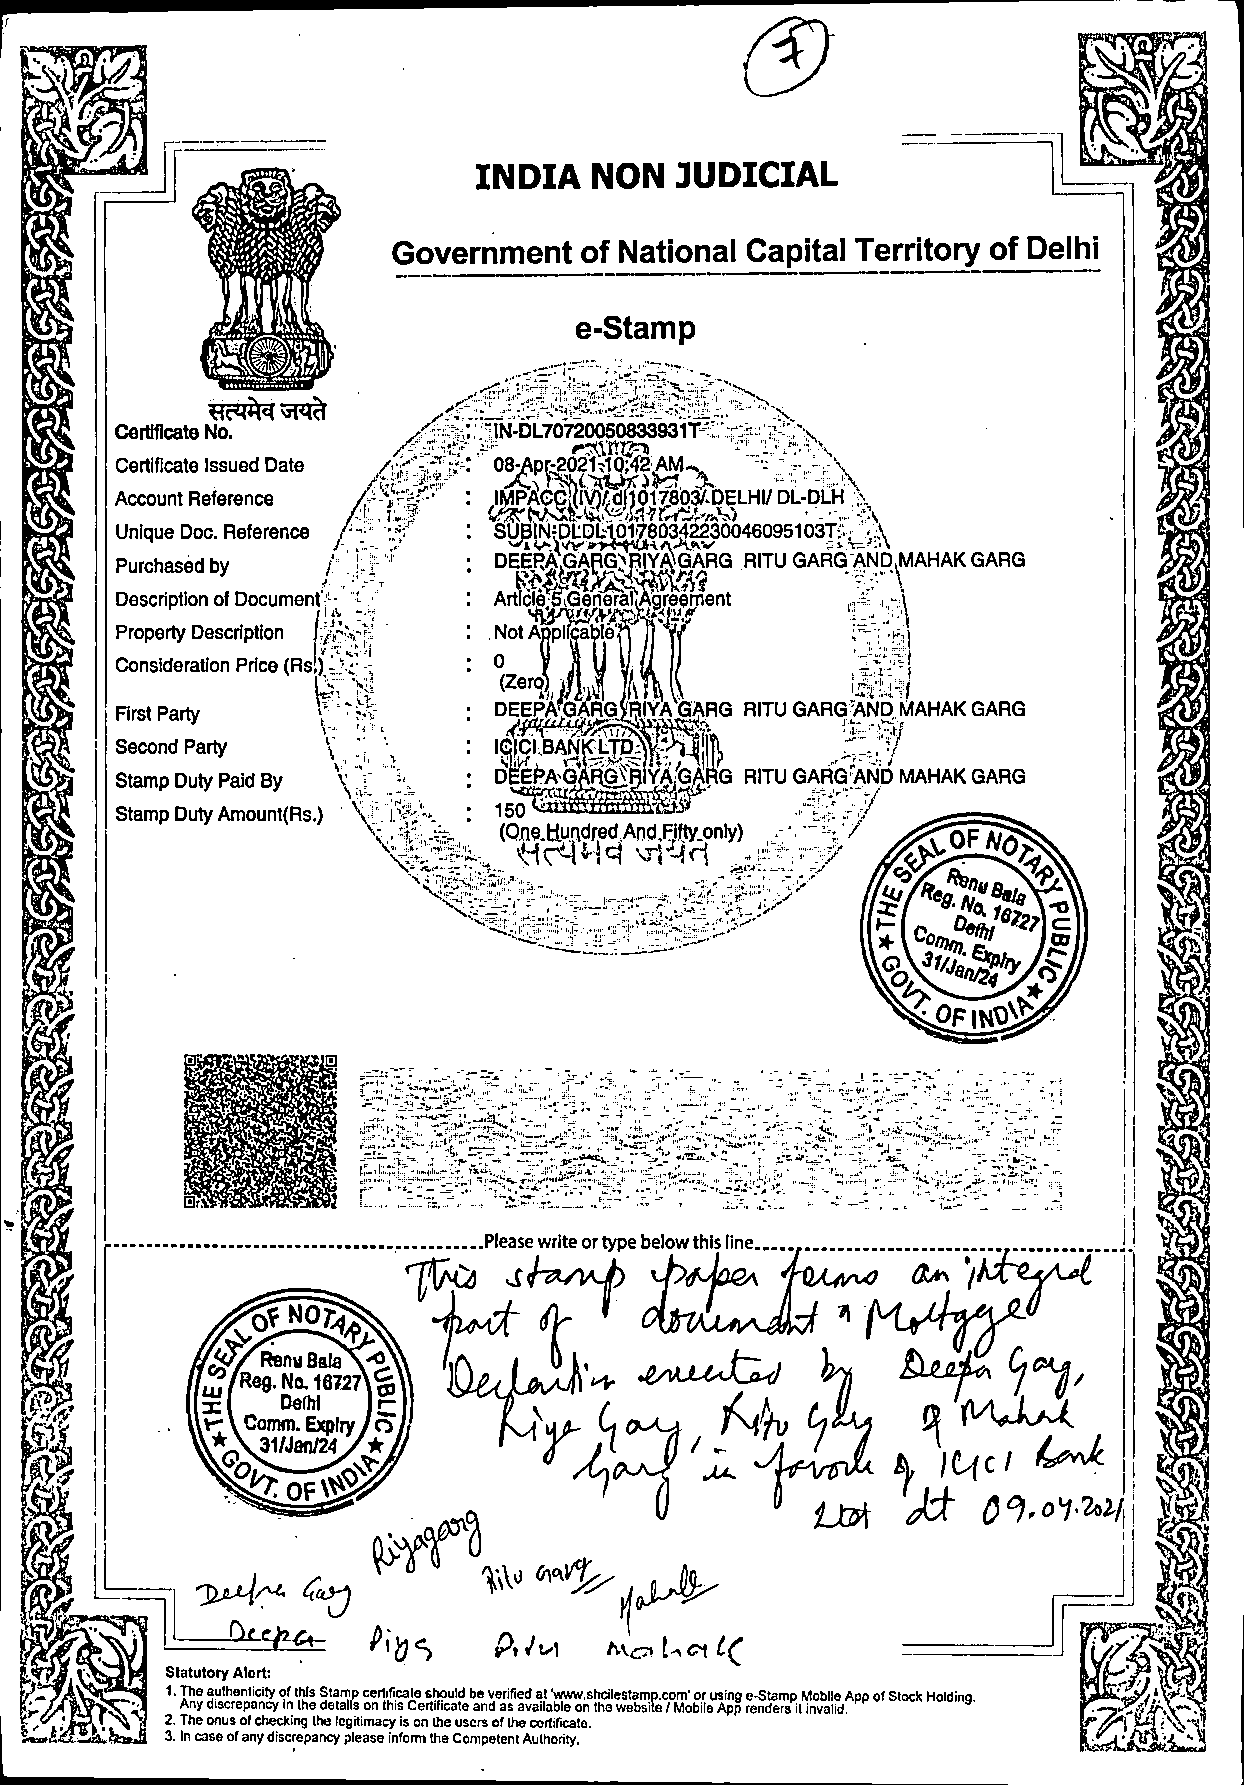 7
INDIA NON JUDICIAL
Government of National Capital Territory of Delhi
e-Stamp
सत्यमेव जयते
Certificate No. : IN-DL70720050833931T
Certificate Issued Date : 08-Apr-2021 10:42 AM
Account Reference : IMPACC (IV)/ dl1017803/ DELHI/ DL-DLH
Unique Doc. Reference : SUBIN-DLDL101780342230046095103T
Purchased by : DEEPA GARG RIYA GARG RITU GARG AND MAHAK GARG
Description of Document : Article 5 General Agreement
Property Description : Not Applicable
Consideration Price (Rs.) : 0
(Zero)
First Party : DEEPA GARG RIYA GARG RITU GARG AND MAHAK GARG
Second Party : ICICI BANK LTD
Stamp Duty Paid By : DEEPA GARG RIYA GARG RITU GARG AND MAHAK GARG
Stamp Duty Amount(Rs.) : 150
(One Hundred And Fifty only)
सत्यमेव जयते
THE SEAL OF NOTARY PUBLIC
Renu Bala
Reg. No. 16727
Delhi
Comm. Expiry
31/Jan/24
GOVT. OF INDIA
Please write or type below this line
This stamp paper forms an integral
part of document Mortgage
Declaration executed by Deepa Garg,
Riya Garg, Ritu Garg & Mahak
Garg in favour of ICICI Bank
Ltd dt 09.04.2021
THE SEAL OF NOTARY PUBLIC
Renu Bala
Reg. No. 16727
Delhi
Comm. Expiry
31/Jan/24
GOVT. OF INDIA
Riyagarg
Deepa Garg Ritu Garg Mahak
Deepa Riya Ritu Mahak
Statutory Alert:
1. The authenticity of this Stamp certificate should be verified at 'www.shcilestamp.com' or using e-Stamp Mobile App of Stock Holding.
Any discrepancy in the details on this Certificate and as available on the website / Mobile App renders it invalid.
2. The onus of checking the legitimacy is on the users of the certificate.
3. In case of any discrepancy please inform the Competent Authority.